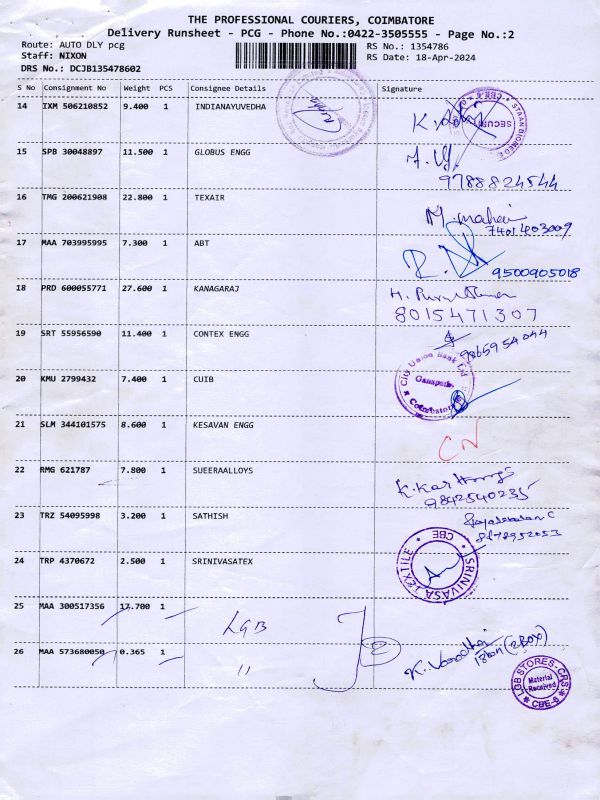 THE PROFESSIONAL COURIERS, COIMBATORE
Delivery Runsheet - PCG - Phone No.:0422-3505555 - Page No.:2
Route: AUTO DLY pcg RS No.: 1354786
Staff: NIXON RS Date: 18-Apr-2024
DRS No.: DCJB135478602
S No Consignment No Weight PCS Consignee Details Signature
14 IXM 506210852 9.400 1 INDIANAYUVEDHA
15 SPB 30048897 11.500 1 GLOBUS ENGG
9788824544
16 TMG 200621908 22.800 1 TEXAIR
7401403009
17 MAA 703995995 7.300 1 ABT
9500905018
18 PRD 600055771 27.600 1 KANAGARAJ
8015471307
19 SRT 55956590 11.400 1 CONTEX ENGG
9865954044
20 KMU 2799432 7.400 1 CUIB
City Union Bank Ltd
Coimbatore
21 SLM 344101575 8.600 1 KESAVAN ENGG
CN
22 RMG 621787 7.800 1 SUEERAALLOYS
9842540235
23 TRZ 54095998 3.200 1 SATHISH
24 TRP 4370672 2.500 1 SRINIVASATEX
SRINIVASA TEXTILE CBE
25 MAA 300517356 17.700 1 LGB
26 MAA 573680050 0.365 1 "
(2BOX)
LGB STORES-CRS
Material
Received
CBE-6